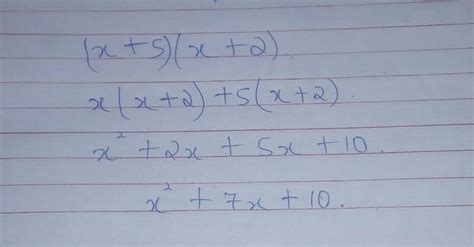 (x + 5)(x + 2).
x(x+2) + 5(x+2).
x² + 2x + 5x + 10.
x² + 7x + 10.